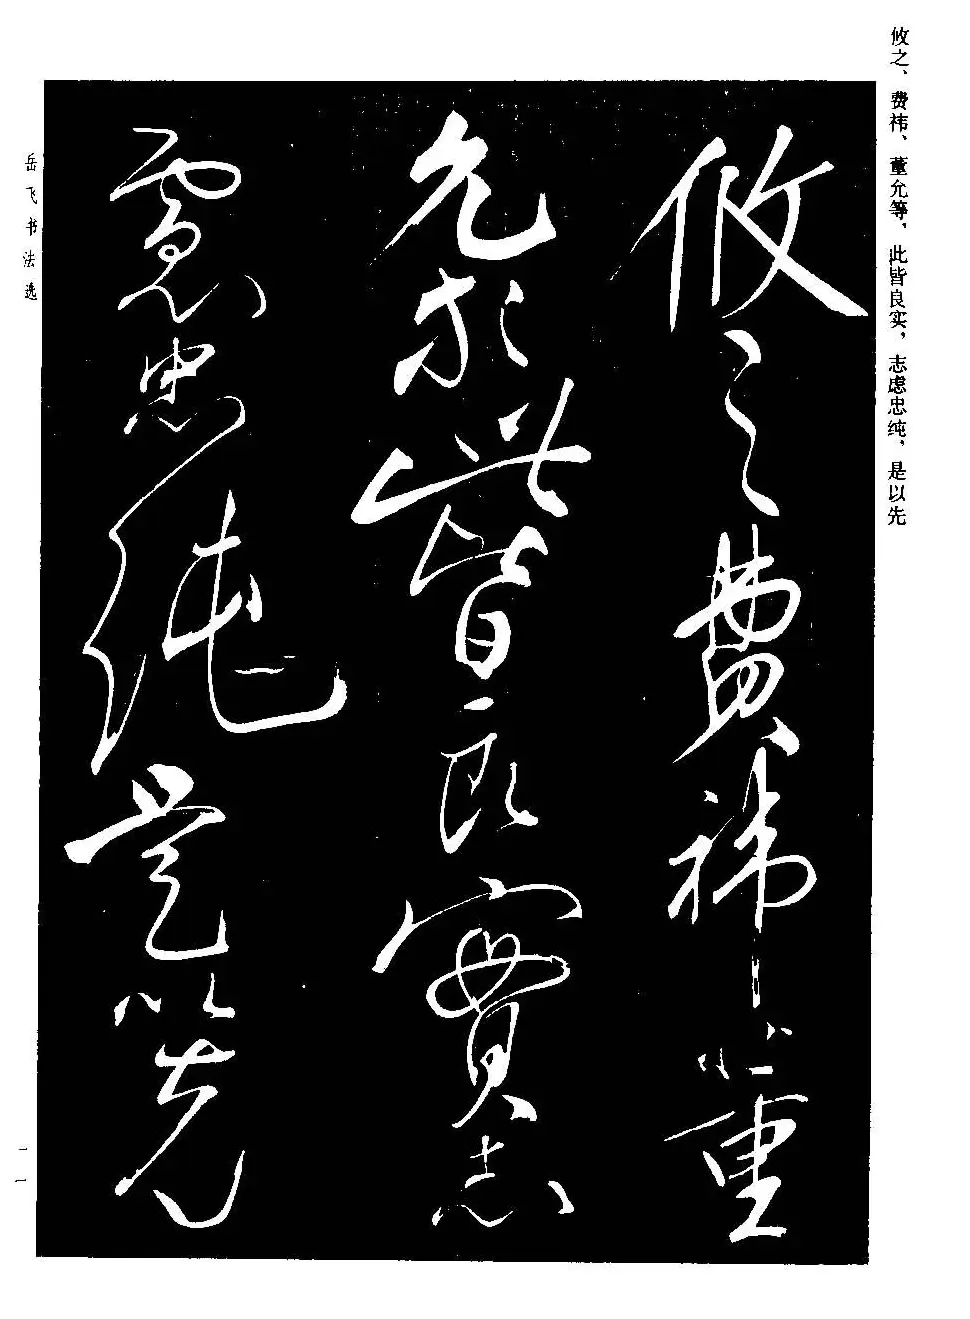 攸之、费祎、董允等，此皆良实，志虑忠纯，是以先
攸之費禕董
允等此皆良實志
慮忠純是以先
岳飞书法选
一一